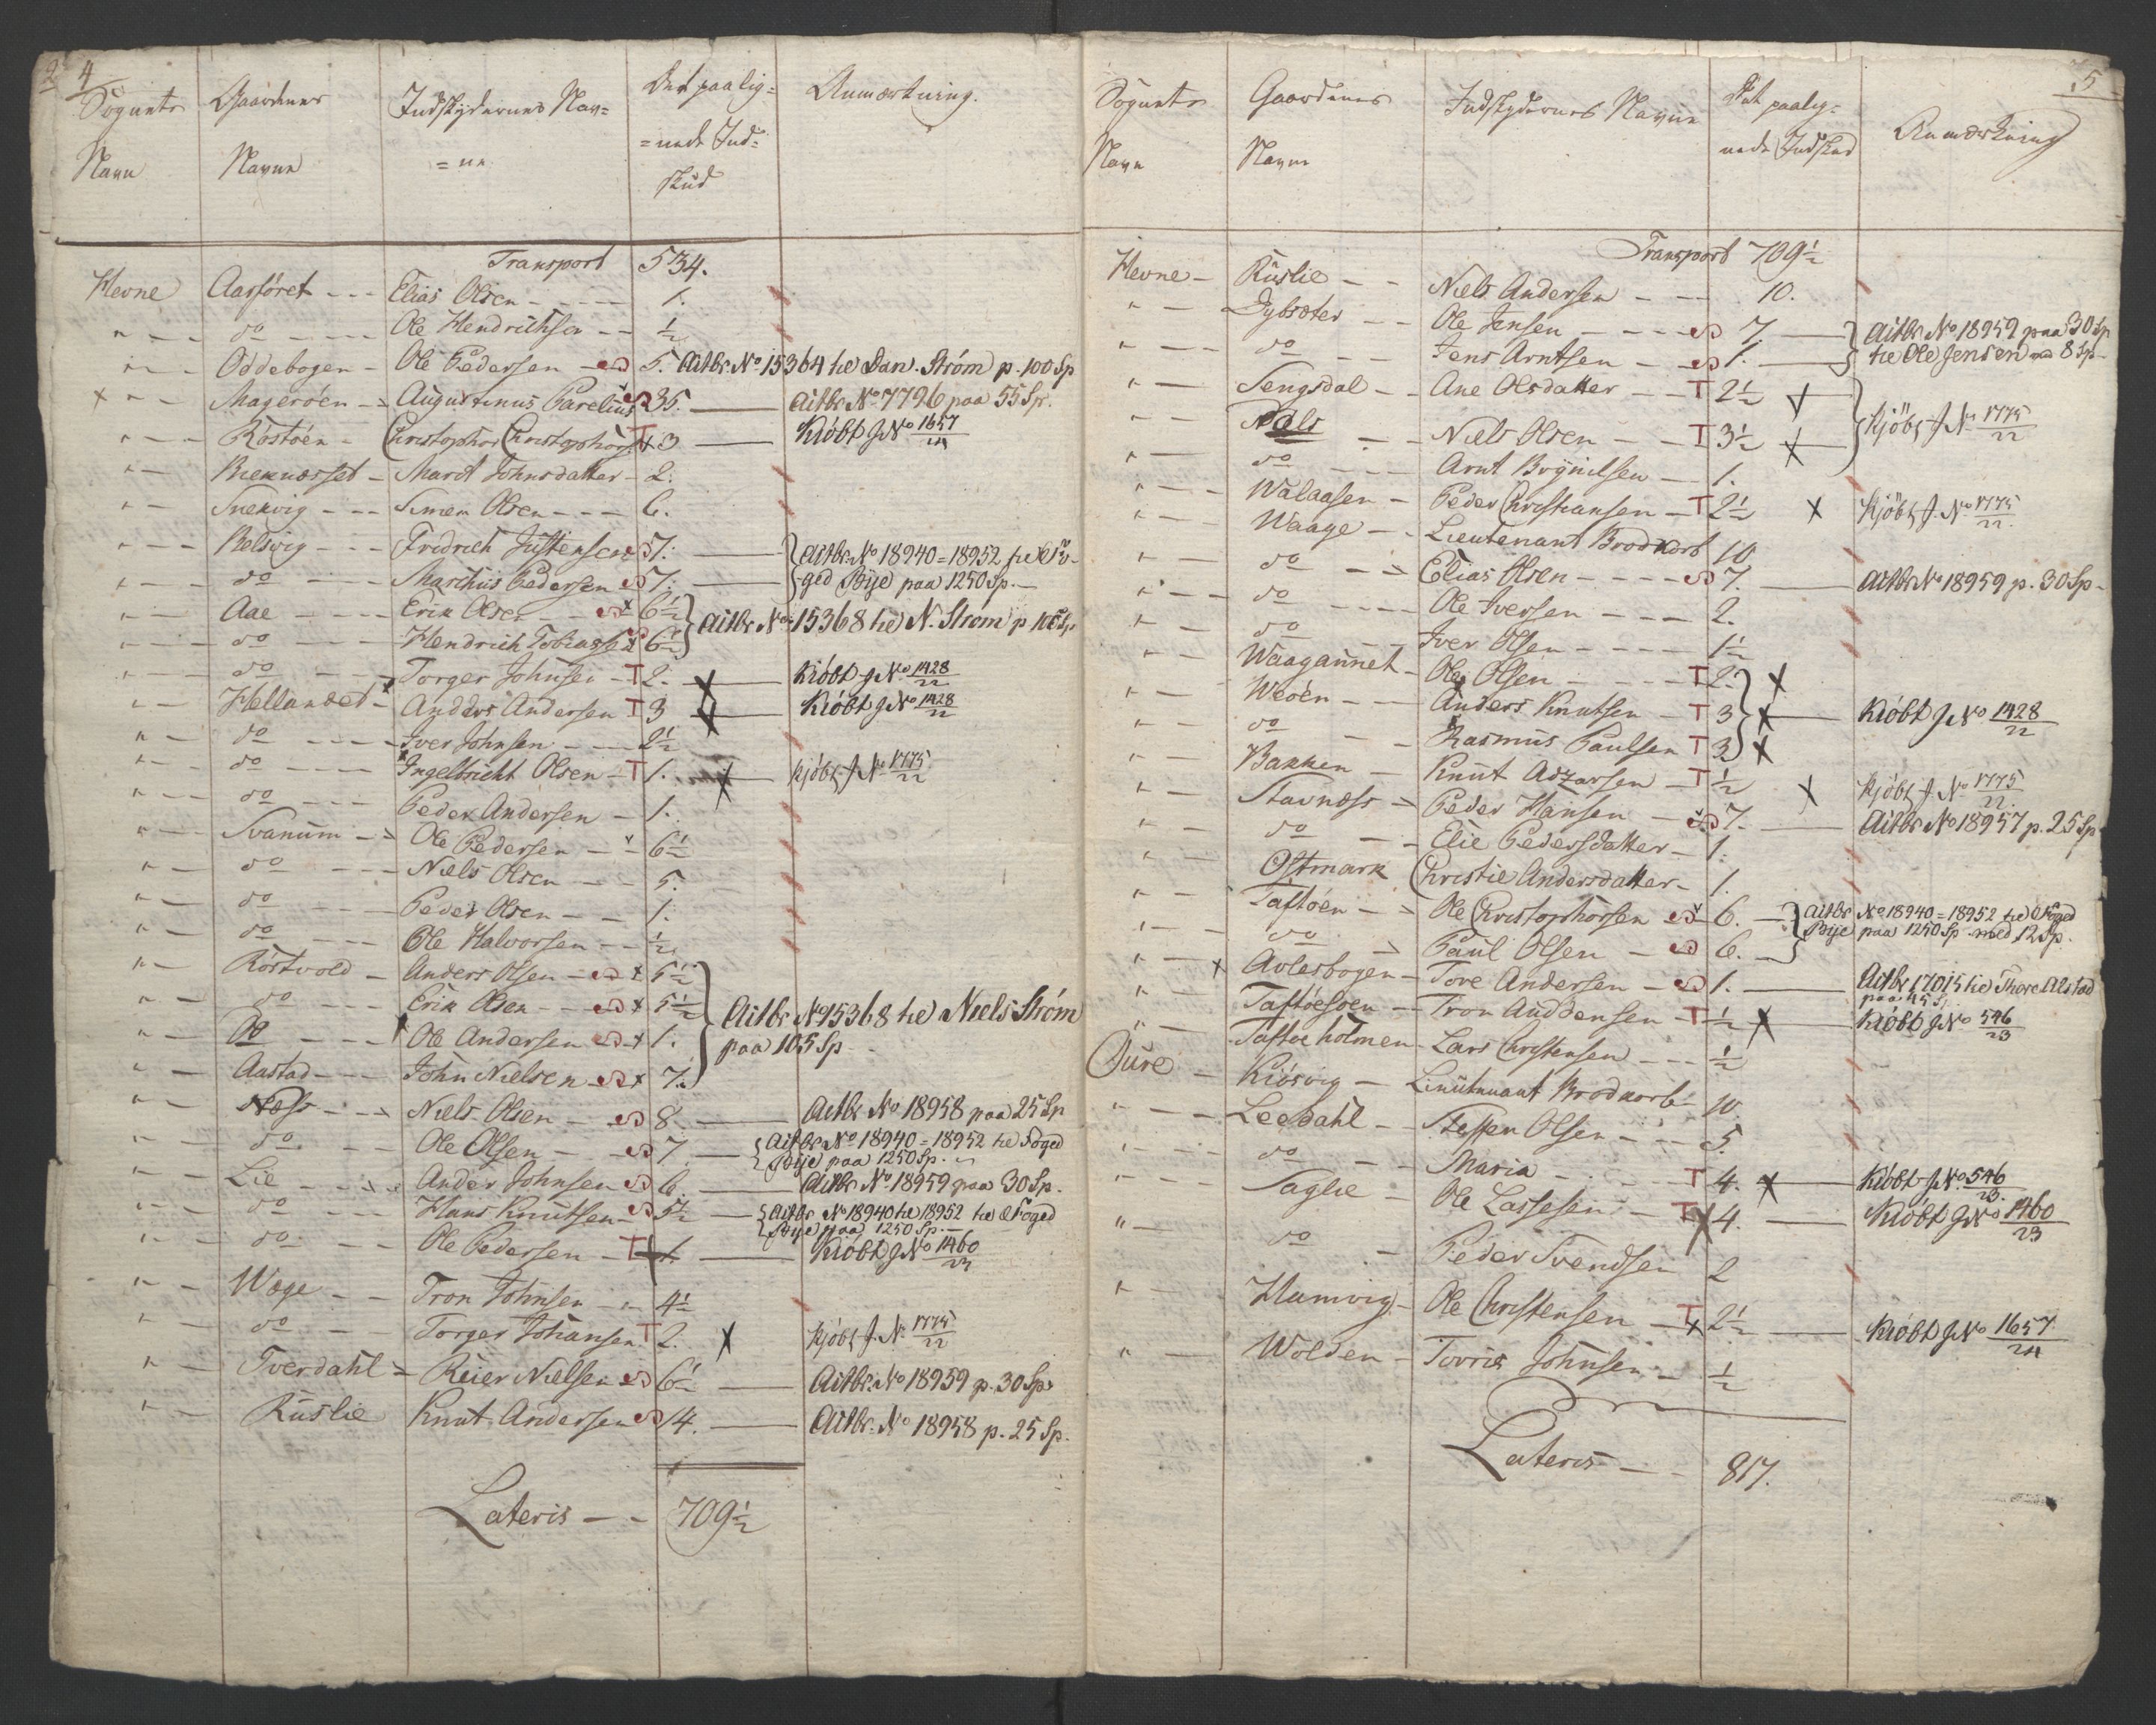 4
Sognets Navn | Gaardenes Navne | Indskydernes Nav=ne | Det paalig=nede Ind=skud | Anmærkning.
Transport 534.
Hevne Aasföret - - - Elias Olsen - - - - 1.
" — do - - - Ole Hendrichsen - - ½
" — Oddebogen - Ole Pedersen - 5. Actbr No 15364 til Dan. Ström p. 100 Sp
x " - Magerøen - Augustinus Parelius 35. — Actbr No 7796 paa 55 Sp.
" — Röstöen - Christopher Christophers. T x 3 — Kiöbt J No 1657/24
" — Kieknæsset - Marit Johnsdatter - 2.
" — Snekvig - - - Simen Olsen - - - 6.
" — Belsvig - - - Fridrich Justensen 7. — Actbr No 18940=18952 til Fo-
" — do - - - Marthus Pedersen 7. — ged Bye paa 1250 Sp.
" — Aae - - - Erik Olsen - - x 6½ Actbr No 15368 til N. Ström p 105 Sp.
" — do - - - Hendrich Tobiassen 6½
" — do - - - Torger Johnsen - T 2. x Kiöbt J No 1428/22
" — Hellandet - Anders Andersen T 3 x Kiöbt J No 1428/22
" — do - - - Iver Johnsen - - - 2½
" — do - - - Ingelbricht Olsen - T 1. x Kjöbt J No 1775/22
" — do - - - Peder Andersen - 1.
" — Svanüm - - Ole Pedersen - - 6½
" — do - - - Niels Olsen - - 5.
" — do - - - Peder Olsen - - 1.
" — do - - - Ole Halvorsen - - ½
" — Röstvold - Anders Olsen - x 5½
" — do - - - Erik Olsen - - x 5½ Actbr No 15368 til Niels Ström
" — do - - - Ole Andersen x 1. paa 105 Sp -
" — Aastad - - - John Nielsen - x 7.
" — Næss - - - Niels Olsen - 8. — Actbr No 18958 paa 25 Sp
" — do - - - Ole Olsen - 7 — Actbr No 18940=18952 til Foged
Bye paa 1250 Sp.
" — Lie - - - Ander Johnsen 6. — Actbr No 18959 paa 30 Sp.
" — do - - - Hans Knutsen - 5½ — Actbr No 18940 til 18952 til Foged
Bye paa 1250 Sp. —
" — do - - - Ole Pedersen - T 1. — Kiöbt J No 1460/23
" — Wæge - - Tron Johnsen - - 4½
" — do - - Torger Johansen T 2. x Kjöbt J. No 1775/22
" — Tverdahl - Reier Nielsen 6½ — Actbr. No 18959 p. 30 Sp.
" — Rüslie Knut Andersen 14. — Actbr. No 18958 p. 25 Sp.
Lateris - - 709½
5
Sognets Navn | Gaardenes Navne | Indskydernes Navne | Det paalig=nede Indskud | Anmærkning
Transport 709½
Hevne - Rüslie - - Niels Andersen - - 10.
" — Dybsæter - - Ole Jensen - - - 7 — Actbr No 18959 paa 30 Sp
" — do - - Jens Arntsen - 1. — til Ole Jensen med 8 Sp -
" — Sengsdal - - Ane Olsdatter - T 2½ x
" — Niels Olsen - - T 3½ x Kjöbt J No 1775/22
" — do - - - Arnt Brÿnilsen - 1.
" — Walaasen - Peder Christiansen - T 2½ x Kjöbt J. No 1775/22.
" — Waage - - Lieutenant Brodkorb 10
" — do - - Elias Olsen - - - 7. — Actbr No 18959 p. 30 Sp -
" — do - - Ole Iversen - - - 2.
" — do - - Iver Olsen - - - 1½
" — Waagannet - Ole Olsen - - - T 2. x
" — Weöen - - Anders Knutsen - T 3 x Kiöbt J No 1428/22
" — do - - Rasmus Paulsen T 3 x
" — Bakken - Knut Adzarsen - T ½ x Kjöbt J. No 1775/22.
" — Stavnæss - Peder Hansen - 7. — Actbr No 18957 p. 25 Sp
" — do - - Elie Pedersdatter - 1.
" — Ostmark Christie Andersdatter - 1.
" — Taftöen - - Ole Christophersen 6. — Actbr No 18940=18952 til Foged
" — do - Paul Olsen - 6. Bye paa 1250 Sp med 12 Sp.
" — x Avlesbogen - Tore Andersen - 1. — Actbr 17015 til Thore Alstad
paa 45 Sp
" — Taftöesöen - Tron Auddensen - T ½ x Kiöbt J No 546/23
" — Taftöe holmen - Lars Christensen - - ½
Öure - Kiörvig - Lieutenant Brodkorb 10.
" — Leerdahl - - Steffen Olsen - - 5.
" — do - - Maria - - - T 4. x Kiöbt J No 546/23.
" — Saglie - Ole Lassesen - T x 4. — Kiöbt J No 1460/23
" — do - Peder Svendsen 2
" — Humvig - Ole Christensen - T x 2½ — Kiöbt J No 1657/24
" — Wolden - Torris Johnsen - ½
Lateris - - 817.